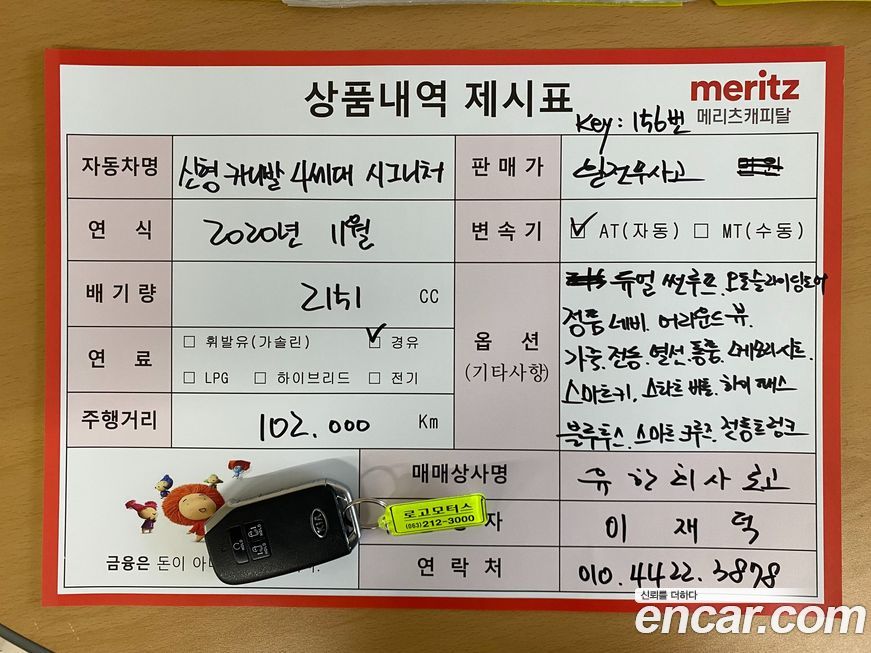 상품내역 제시표
meritz
메리츠캐피탈
Key : 156번
자동차명 신형 카니발 4세대 시그니처
판매가 완전무사고
연 식 2020년 11월
변속기 ☑ AT(자동) □ MT(수동)
배기량 2151 CC
연 료 □ 휘발유(가솔린) ☑ 경유
□ LPG □ 하이브리드 □ 전기
주행거리 102.000 Km
옵 션
(기타사항)
듀얼 썬루프. 오토슬라이딩도어
정품 네비. 어라운드 뷰.
가죽. 전동. 열선. 통풍. 메모리시트.
스마트키. 스타트 버튼. 하이패스
블루투스. 스마트 크루즈. 전동트렁크
매매상사명 유한회사 로고
자 이 재 덕
연 락 처 010.4422.3878
금융은 돈이 아
로고모터스
(063)212-3000
KIA
신뢰를 더하다
encar.com